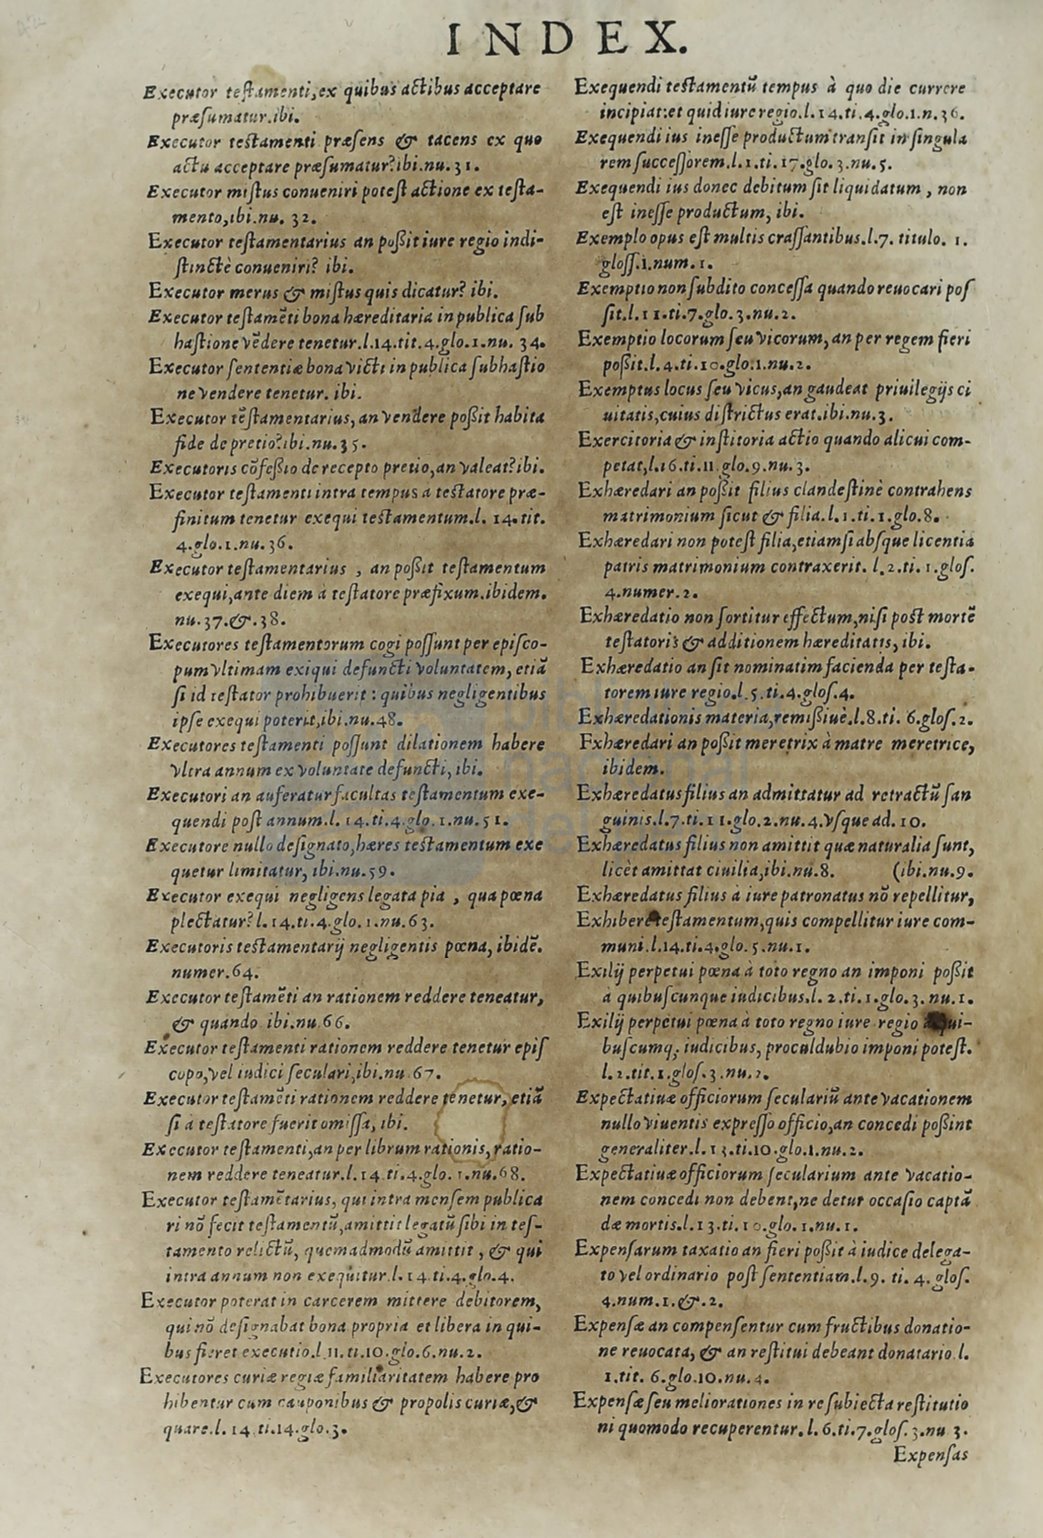 INDEX.
Executor testamenti, ex quibus actibus acceptare
præsumatur.ibi.
Executor testamenti præsens & tacens ex quo
actu acceptare præsumatur?ibi.nu.31.
Executor mistus conueniri potest actione ex testa-
mento,ibi.nu. 32.
Executor testamentarius an possit iure regio indi-
stinctè conueniri? ibi.
Executor merus & mistus quis dicatur? ibi.
Executor testamẽti bona hæreditaria in publica sub
hastione vẽdere tenetur.l.14.tit.4.glo.1.nu. 34.
Executor sententiæ bona victi in publica subhastio
ne vendere tenetur. ibi.
Executor testamentarius, an vendere possit habita
fide de pretio?ibi.nu.35.
Executoris cõfessio de recepto pretio,an valeat?ibi.
Executor testamenti intra tempus a testatore præ-
finitum tenetur exequi testamentum.l. 14.tit.
4.glo.1.nu.36.
Executor testamentarius , an possit testamentum
exequi,ante diem à testatore præfixum.ibidem.
nu.37.&.38.
Executores testamentorum cogi possunt per episco-
pum vltimam exiqui defuncti voluntatem, etiã
si id testator prohibuerit : quibus negligentibus
ipse exequi poterit,ibi.nu.48.
Executores testamenti possunt dilationem habere
vltra annum ex voluntate defuncti, ibi.
Executori an auferatur facultas testamentum exe-
quendi post annum.l. 14.ti.4.glo.1.nu.51.
Executore nullo designato,hæres testamentum exe
quetur limitatur, ibi.nu.59.
Executor exequi negligens legata pia , qua pœna
plectatur? l.14.ti.4.glo.1.nu.63.
Executoris testamentarij negligentis pœna, ibidẽ.
numer.64.
Executor testamẽti an rationem reddere teneatur,
& quando ibi.nu.66.
Executor testamenti rationem reddere tenetur epis
copo,vel iudici seculari,ibi.nu.67.
Executor testamẽti rationem reddere tenetur, etiã
si à testatore fuerit omissa, ibi.
Executor testamenti,an per librum rationis, ratio-
nem reddere teneatur.l.14.ti.4.glo. 1.nu.68.
Executor testamẽtarius, qui intra mensem publica
ri nõ fecit testamentũ,amittit legatũ sibi in tes-
tamento relictũ, quemadmodũ amittit , & qui
intra annum non exequitur.l.14.ti.4.glo.4.
Executor poterat in carcerem mittere debitorem,
qui nõ designabat bona propria et libera in qui-
bus fieret executio.l.11.ti.10.glo.6.nu.2.
Executores curiæ regiæ familiaritatem habere pro
hibentur cum cauponibus & propolis curiæ,&
quare.l. 14.ti.14.glo.3.
Exequendi testamentũ tempus à quo die currere
incipiat:et quid iure regio.l.14.ti.4.glo.1.n.36.
Exequendi ius inesse productum transit in singula
rem successorem.l.1.ti.17.glo.3.nu.5.
Exequendi ius donec debitum sit liquidatum , non
est inesse productum, ibi.
Exemplo opus est multis crassantibus.l.7. titulo. 1.
gloss.1.num.1.
Exemptio non subdito concessa quando reuocari pos
sit.l.11.ti.7.glo.3.nu.2.
Exemptio locorum seu vicorum, an per regem fieri
possit.l.4.ti.10.glo.1.nu.2.
Exemptus locus seu vicus,an gaudeat priuilegijs ci
uitatis,cuius districtus erat.ibi.nu.3.
Exercitoria & institoria actio quando alicui com-
petat,l.16.ti.11.glo.9.nu.3.
Exhæredari an possit filius clandestinè contrahens
matrimonium sicut & filia.l.1.ti.1.glo.8.
Exhæredari non potest filia,etiamsi absque licentia
patris matrimonium contraxerit. l.2.ti. 1.glos.
4.numer.2.
Exhæredatio non sortitur effectum,nisi post mortẽ
testatoris & additionem hæreditatis, ibi.
Exhæredatio an sit nominatim facienda per testa-
torem iure regio.l.5.ti.4.glos.4.
Exhæredationis materia,remissiuè.l.8.ti. 6.glos.2.
Exhæredari an possit meretrix à matre meretrice,
ibidem.
Exhæredatus filius an admittatur ad retractũ san
guinis.l.7.ti.11.glo.2.nu.4.vsque ad.10.
Exhæredatus filius non amittit quæ naturalia sunt,
licèt amittat ciuilia,ibi.nu.8. (ibi.nu.9.
Exhæredatus filius à iure patronatus nõ repellitur,
Exhiber testamentum,quis compellitur iure com-
muni.l.14.ti.4.glo.5.nu.1.
Exilij perpetui pœna à toto regno an imponi possit
à quibuscunque iudicibus.l. 2.ti.1.glo.3.nu.1.
Exilij perpetui pœna à toto regno iure regio à qui-
buscumq; iudicibus, proculdubio imponi potest.
l.2.tit.1.glos.3.nu.2.
Expectatiuæ officiorum seculariũ ante vacationem
nullo viuentis expresso officio,an concedi possint
generaliter.l.13.ti.10.glo.1.nu.2.
Expectatiuæ officiorum secularium ante vacatio-
nem concedi non debent,ne detur occasio captã
dæ mortis.l.13.ti.10.glo.1.nu.1.
Expensarum taxatio an fieri possit à iudice delega-
to vel ordinario post sententiam.l.9. ti. 4. glos.
4.num.1.&.2.
Expensæ an compensentur cum fructibus donatio-
ne reuocata, & an restitui debeant donatario.l.
1.tit. 6.glo.10.nu.4.
Expensæ seu meliorationes in re subiecta restitutio
ni quomodo recuperentur.l.6.ti.7.glos.3.nu.3.
Expensas